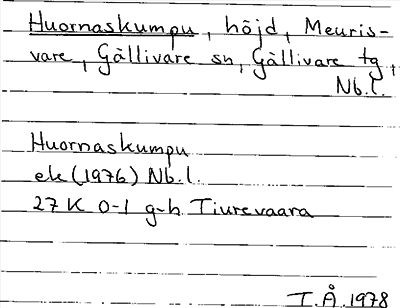 Huornaskumpu, höjd, Meuris-
vare, Gällivare sn, Gällivare tg,
Nb.l.
Huornaskumpu
ek (1976) Nb.l.
27 K 0-1 g-h Tiurevaara
T.Å. 1978